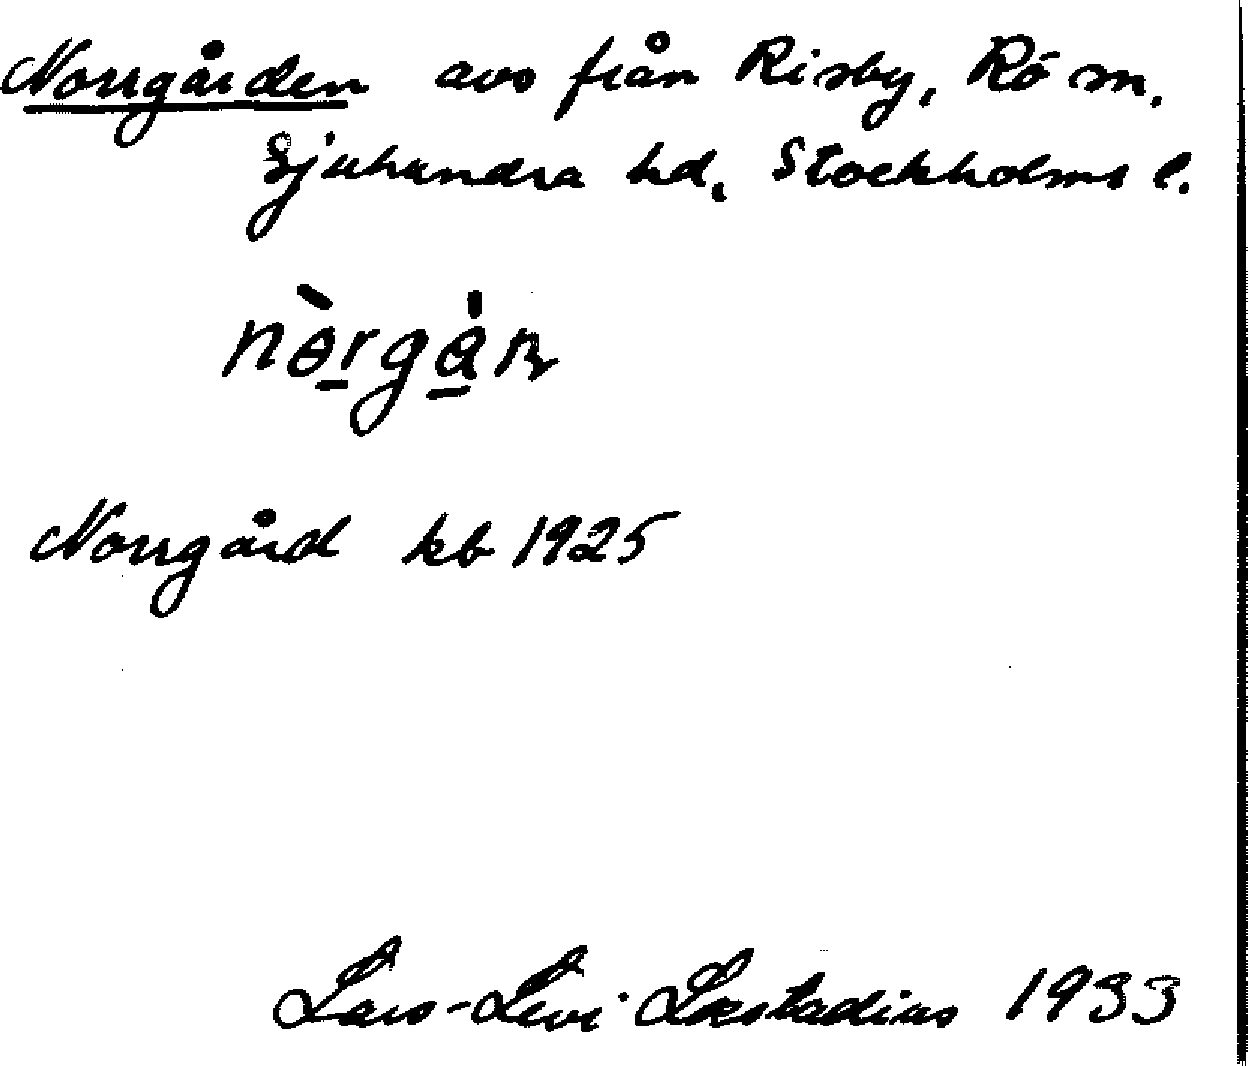 Norrgården avs från Risby, Rö sn.
Sjuhundra hd, Stockholms l.
Norrgård kb 1925
Lars-Levi Læstadius 1933